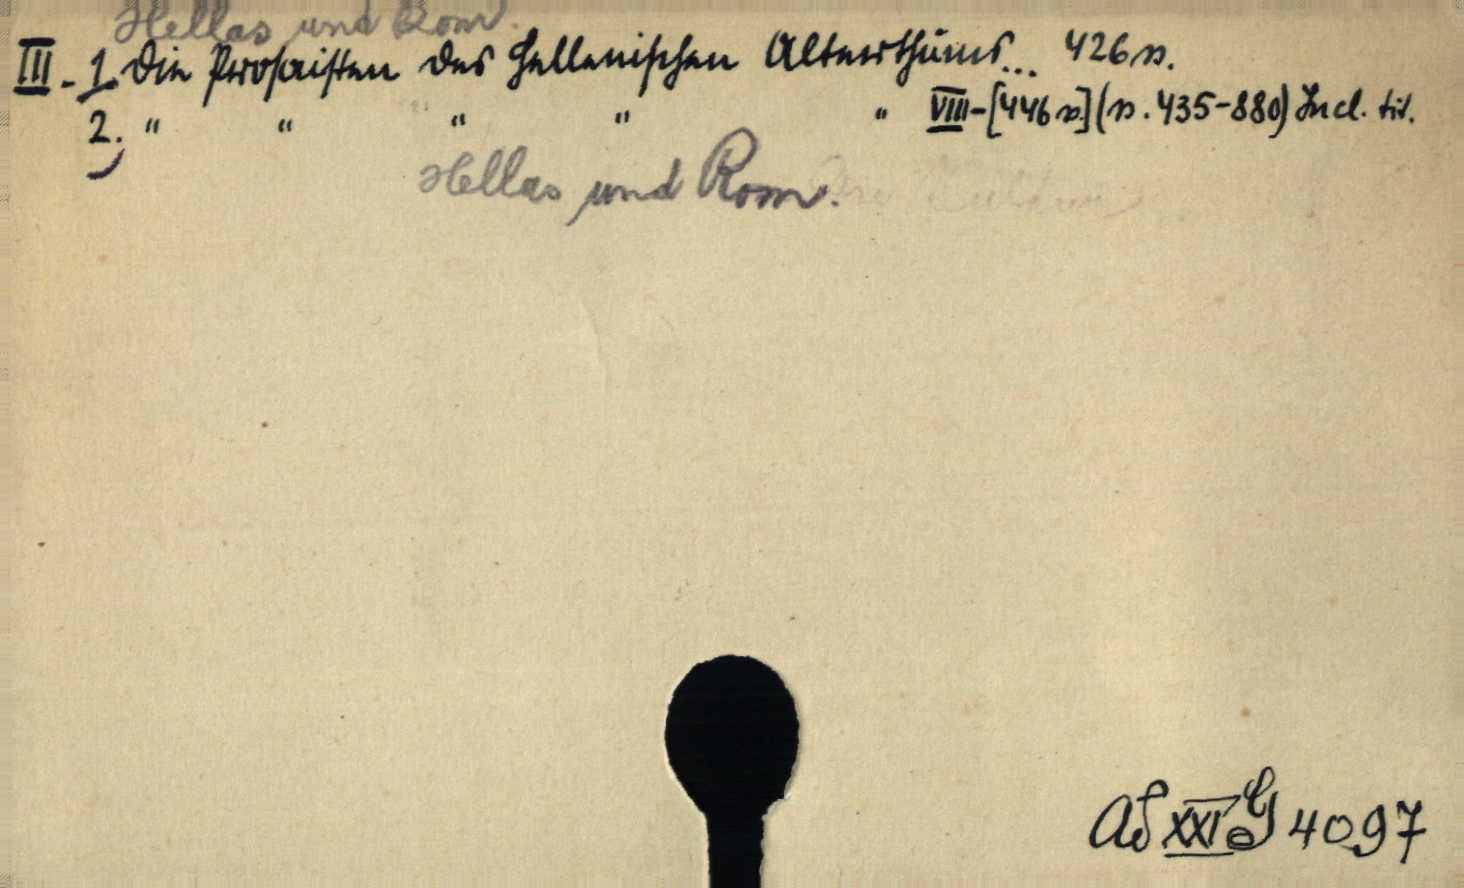 Hellas und Rom.
III - 1. Die Prosaisten des hellenischen Alterthums... 426 s.
2. " " " " " VIII-[446 s.] (s. 435-880) Incl. tit.
Hellas und Rom.
Ad XXI e G 4097